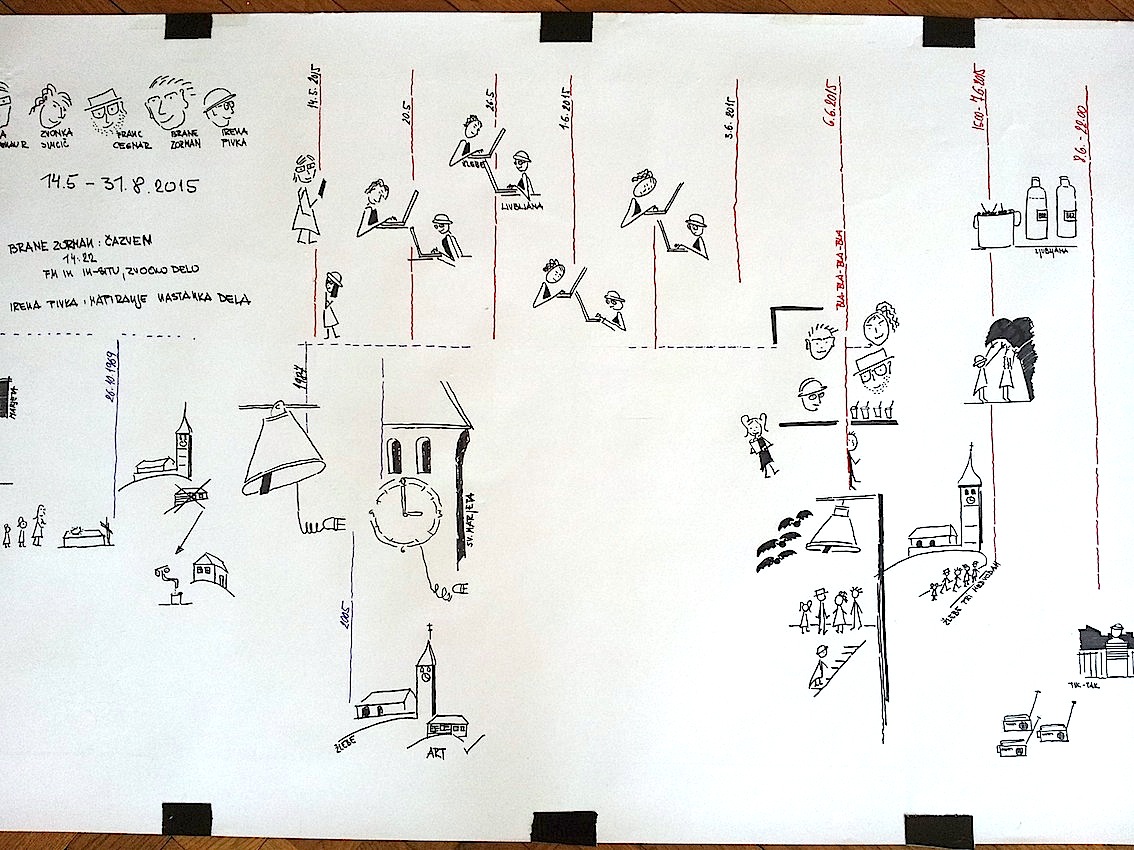 ZVONKA
SIMČIČ
FRANC
CEGNAR
BRANE
ZORMAN
IRENA
PIVKA
14.5 – 31.8.2015
BRANE ZORMAN: ČAZVEM
14:22
FM IN IN-SITU, ZVOČNO DELO
IRENA PIVKA: NATIRANJE NASTANKA DELA
14.5.2015
20.5
26.5
1.6.2015
3.6.2015
6.6.2015
8.6. – 22.00
ŽLEBE
LJUBLJANA
LJUBLJANA
BLA-BLA-BLA-BLA
MARJETA
26.10.1969
1987
SV. MARJETA
2005
ŽLEBE
ART
ŽLEBE PRI MEDVODAH
TIK-TAK